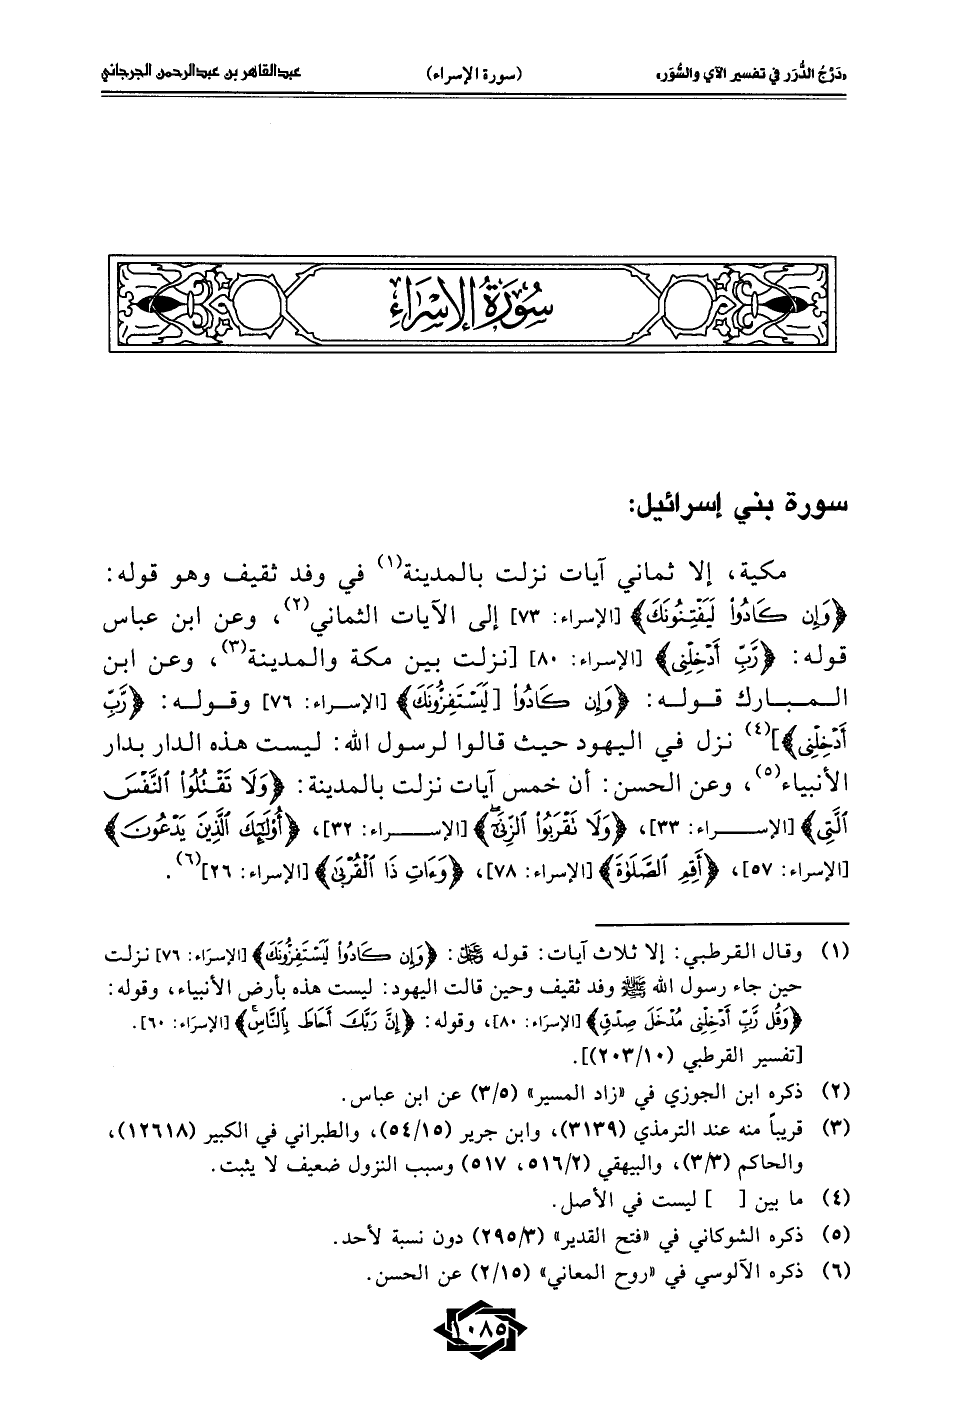 «دَرْجُ الدُّرَر في تفسير الآي والسُّوَر»
(سورة الإسراء)
عبدالقاهر بن عبدالرحمن الجرجاني
سُورَةُ الإِسْرَاءِ
سورة بني إسرائيل:
مكية، إلا ثماني آيات نزلت بالمدينة(١) في وفد ثقيف وهو قوله:
﴿وَإِن كَادُواْ لَيَفْتِنُونَكَ﴾ [الإسراء: ٧٣] إلى الآيات الثماني(٢)، وعن ابن عباس
قوله: ﴿رَّبِّ أَدْخِلْنِي﴾ [الإسراء: ٨٠] [نزلت بين مكة والمدينة(٣)، وعن ابن
المبارك قوله: ﴿وَإِن كَادُواْ [لَيَسْتَفِزُّونَكَ﴾ [الإسراء: ٧٦] وقوله: ﴿رَّبِّ
أَدْخِلْنِي﴾](٤) نزل في اليهود حيث قالوا لرسول الله: ليست هذه الدار بدار
الأنبياء(٥)، وعن الحسن: أن خمس آيات نزلت بالمدينة: ﴿وَلَا نَقْتُلُواْ ٱلنَّفْسَ
ٱلَّتِي﴾ [الإسراء: ٣٣]، ﴿وَلَا نَقْرَبُواْ ٱلزِّنَىٰٓۖ﴾ [الإسراء: ٣٢]، ﴿أُوْلَٰٓئِكَ ٱلَّذِينَ يَدْعُونَ﴾
[الإسراء: ٥٧]، ﴿أَقِمِ ٱلصَّلَوٰةَ﴾ [الإسراء: ٧٨]، ﴿وَءَاتِ ذَا ٱلْقُرْبَىٰ﴾ [الإسراء: ٢٦](٦).
(١) وقال القرطبي: إلا ثلاث آيات: قوله ﷿: ﴿وَإِن كَادُواْ لَيَسْتَفِزُّونَكَ﴾ [الإسرَاء: ٧٦] نزلت
حين جاء رسول الله ﷺ وفد ثقيف وحين قالت اليهود: ليست هذه بأرض الأنبياء، وقوله:
﴿وَقُل رَّبِّ أَدْخِلْنِي مُدْخَلَ صِدْقٍ﴾ [الإسرَاء: ٨٠]، وقوله: ﴿إِنَّ رَبَّكَ أَحَاطَ بِٱلنَّاسِۚ﴾ [الإسرَاء: ٦٠].
[تفسير القرطبي (٢٠٣/١٠)].
(٢) ذكره ابن الجوزي في «زاد المسير» (٣/٥) عن ابن عباس.
(٣) قريباً منه عند الترمذي (٣١٣٩)، وابن جرير (٥٤/١٥)، والطبراني في الكبير (١٢٦١٨)،
والحاكم (٣/٣)، والبيهقي (٥١٦/٢، ٥١٧) وسبب النزول ضعيف لا يثبت.
(٤) ما بين [ ] ليست في الأصل.
(٥) ذكره الشوكاني في «فتح القدير» (٢٩٥/٣) دون نسبة لأحد.
(٦) ذكره الآلوسي في «روح المعاني» (٢/١٥) عن الحسن.
١٠٨٥